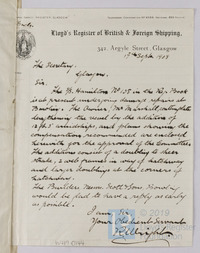 Lloyd's Register of British & Foreign Shipping,
342, Argyle Street, Glasgow
Sept. 1908
The Secretary,
Glasgow.
Sir,
The S/S Hamilton No 155 in the Reg. Book
is at present undergoing damage repairs at
Bowling. The Owner, contemplate
lengthening the vessel by the addition of
amidships, and plans showing the
compensation recommended are enclosed
herewith for the approval of the Committee.
The addition consists of doubling to sheer
strake, & web frames in way of hatchway
and large doublings at the corners of
hatchway.
The Builders Messrs Scott & Sons, Bowling
would be glad to have a reply as early
as possible.
I am, Sir,
Your Obedient Servant
© 2019